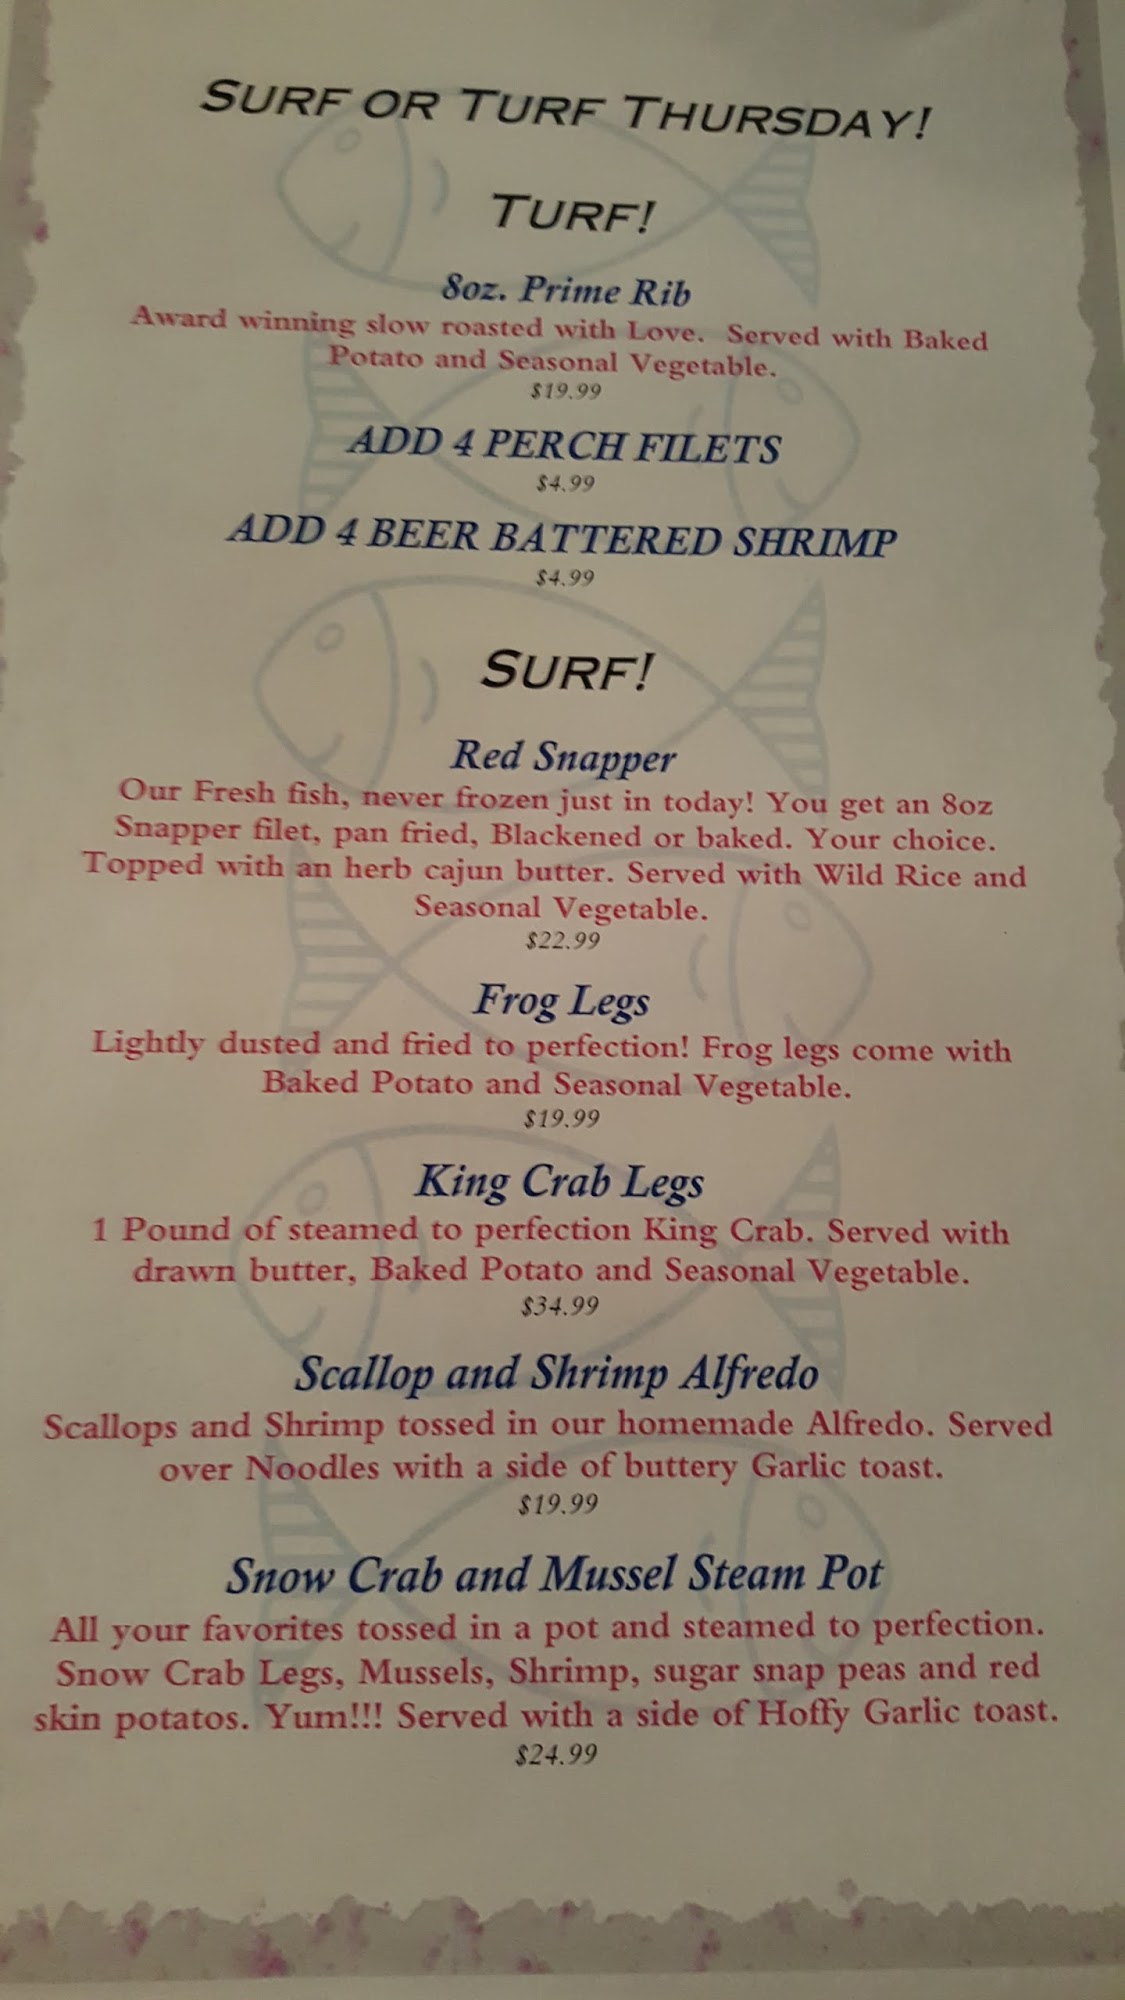 SURF OR TURF THURSDAY!
TURF!
8oz. Prime Rib
Award winning slow roasted with Love. Served with Baked
Potato and Seasonal Vegetable.
$19.99
ADD 4 PERCH FILETS
$4.99
ADD 4 BEER BATTERED SHRIMP
$4.99
SURF!
Red Snapper
Our Fresh fish, never frozen just in today! You get an 8oz
Snapper filet, pan fried, Blackened or baked. Your choice.
Topped with an herb cajun butter. Served with Wild Rice and
Seasonal Vegetable.
$22.99
Frog Legs
Lightly dusted and fried to perfection! Frog legs come with
Baked Potato and Seasonal Vegetable.
$19.99
King Crab Legs
1 Pound of steamed to perfection King Crab. Served with
drawn butter, Baked Potato and Seasonal Vegetable.
$34.99
Scallop and Shrimp Alfredo
Scallops and Shrimp tossed in our homemade Alfredo. Served
over Noodles with a side of buttery Garlic toast.
$19.99
Snow Crab and Mussel Steam Pot
All your favorites tossed in a pot and steamed to perfection.
Snow Crab Legs, Mussels, Shrimp, sugar snap peas and red
skin potatos. Yum!!! Served with a side of Hoffy Garlic toast.
$24.99